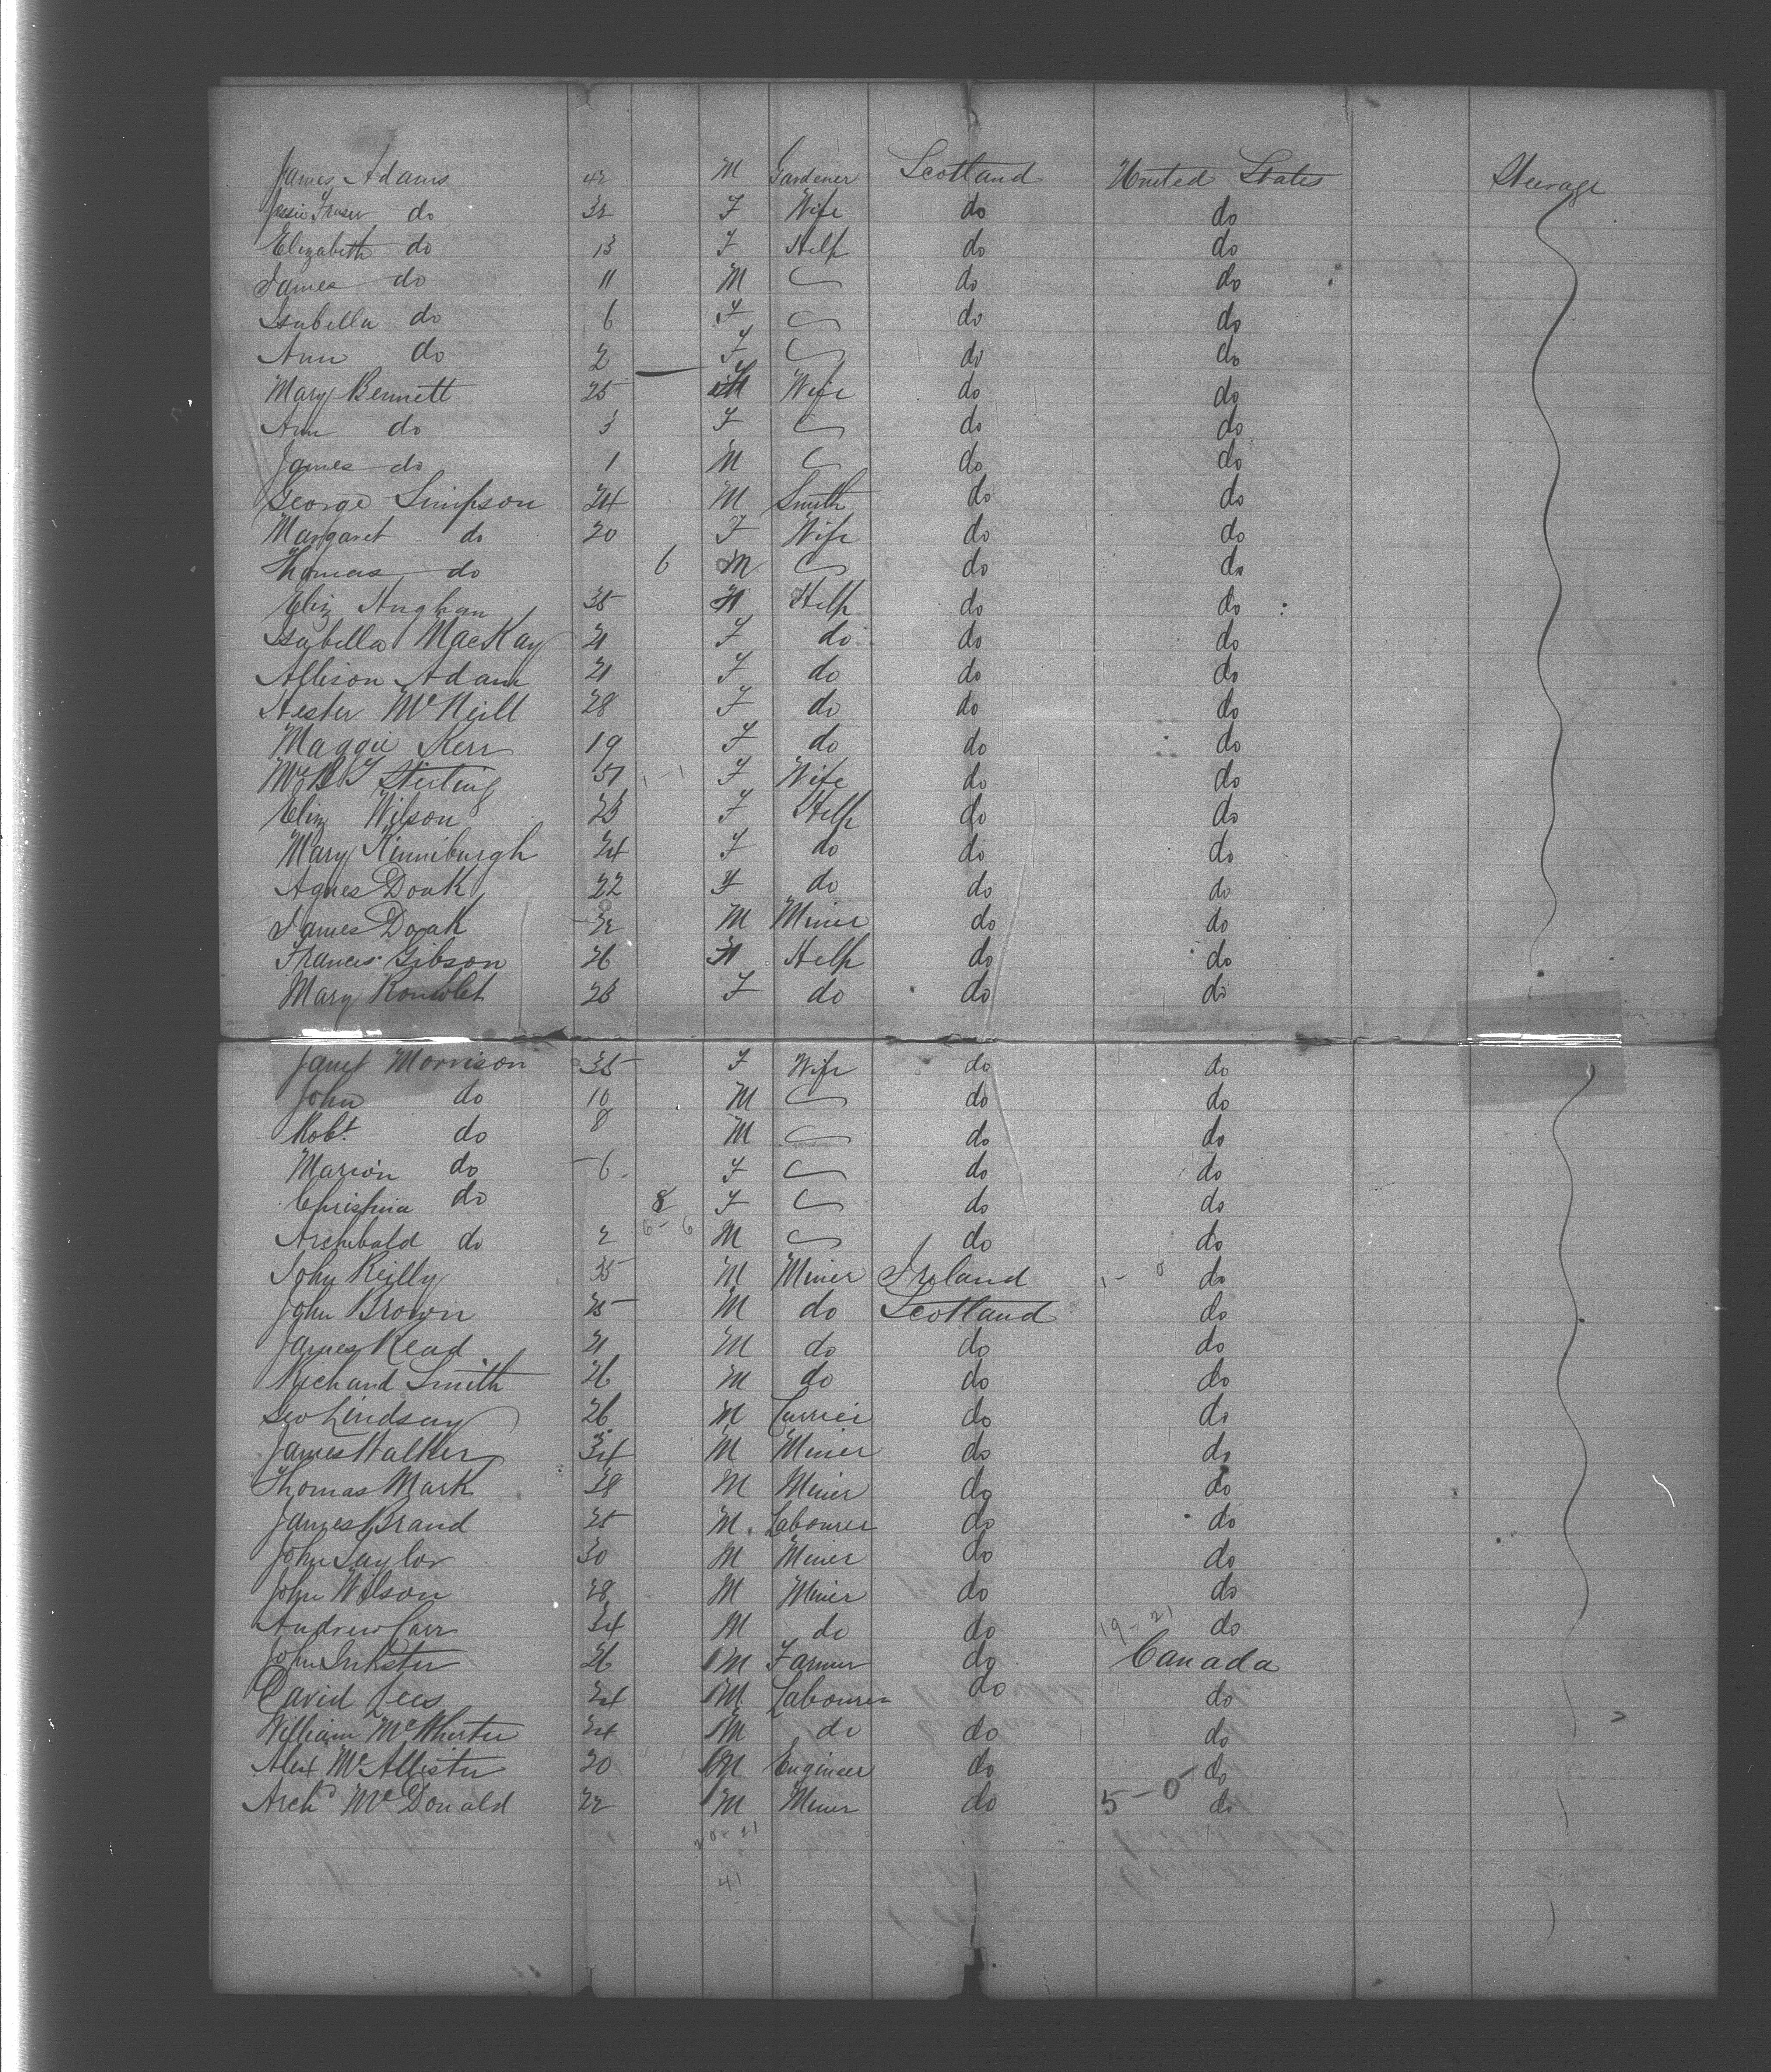 James Adams 42 M Gardener Scotland United States Steerage
Jessie Fraser do 32 F Wife do do
Elizabeth do 13 F Help do do
James do 11 M do do
Isabella do 6 F do do
Ann do 2 F do do
Mary Bennett 25 Wife do do
Ann do 3 F do do
James do 1 M do do
George Simpson 24 M Smith do do
Margaret do 20 F Wife do do
Thomas do 6 M do do
Eliz Hughan 35 Help do do
Isabella MacKay 21 F do do do
Allison Adam 21 F do do do
Hester McNeill 28 F do do do
Maggie Kerr 19 F do do do
Stirling F Wife do do
Eliz Wilson 23 F Help do do
Mary Kinniburgh 24 F do do do
Agnes Doak 22 F do do do
James Doak 32 M Miner do do
Francis Gibson 26 Help do do
Mary 23 F do do do
Janet Morrison 35 F Wife do do
John do 10 M do do
Robt do 8 M do do
Marion do 6 F do do
Christina do 8 F do do
6 - 6
Archibald do 2 M do do
John Reilly 35 M Miner Ireland 1 - 0 do
John Brown 25 M do Scotland do
James Read 21 M do do do
Richard Smith 26 M do do do
Geo Lindsay 26 M Currier do do
James Walker 34 M Miner do do
Thomas Mark 38 M Miner do do
James Brand 25 M Labourer do do
John Taylor 30 M Miner do do
John Wilson 28 M Miner do do
Andrew Carr 34 M do do 19 - 21 do
John Inkster 26 M Farmer do Canada
David Lees 24 M Labourer do do
William McWhirter 24 M do do do
Alex McAllister 20 M Engineer do do
Archd McDonald 22 M Miner do 5 - 0 do
20 - 21
41